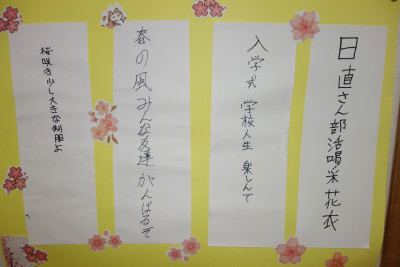 日直さん部活喝采花衣
入学式 学校人生 楽しんで
春の風みんな友達がんばるぞ
桜咲き少し大きな制服よ